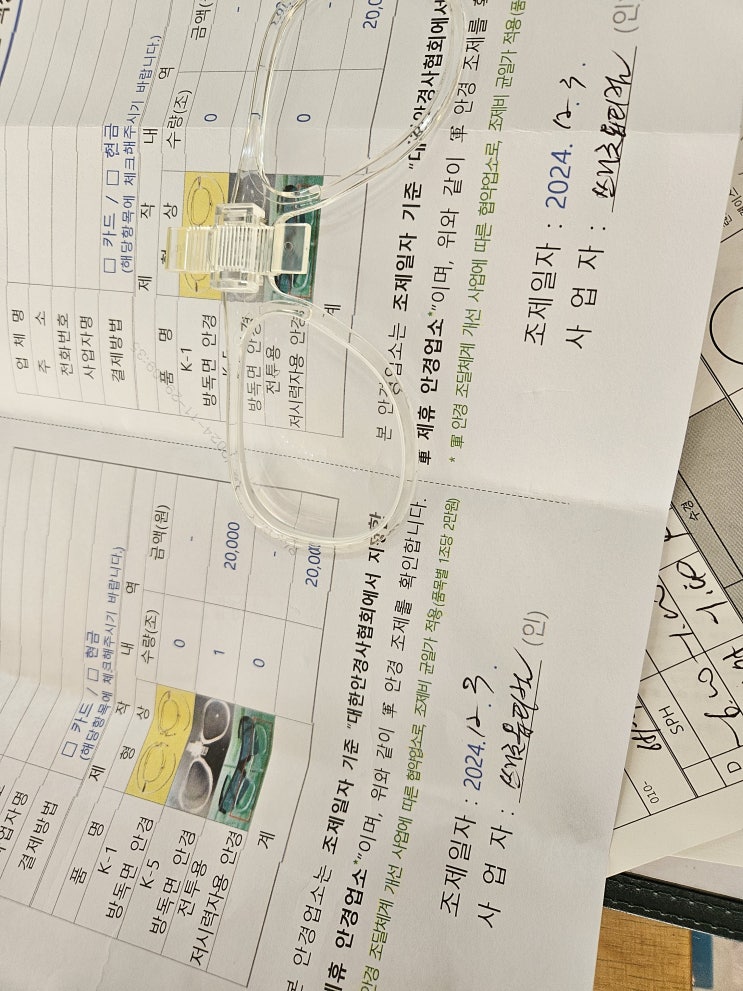 업 체 명
주 소
전화번호
사업자명
결제방법 □ 카드 / □ 현금
(해당항목에 체크해주시기 바랍니다.)
제 작 내 역
품 명 형 상 수량(조) 금액(원
K-1
방독면 안경 0 -
방독면 안경
전투용
저시력자용 안경 0 -
계 20,0
본 안경업소는 조제일자 기준 "대한안경사협회에서
軍 제휴 안경업소*"이며, 위와 같이 軍 안경 조제를 확
* 軍 안경 조달체계 개선 사업에 따른 협약업소로, 조제비 균일가 적용(품
조제일자 : 2024. 12. 3.
사 업 자 : (인
업자명
결제방법 □ 카드 / □ 현금
(해당항목에 체크해주시기 바랍니다.)
제 작 내 역
품 명 형 상 수량(조) 금액(원)
K-1
방독면 안경 0 -
K-5
방독면 안경 1 20,000
전투용
저시력자용 안경 0 -
계 20,000
안경업소는 조제일자 기준 "대한안경사협회에서 지정한
제휴 안경업소*"이며, 위와 같이 軍 안경 조제를 확인합니다.
안경 조달체계 개선 사업에 따른 협약업소로, 조제비 균일가 적용(품목별 1조당 2만원)
조제일자 : 2024. 12. 3.
사 업 자 : (인)
010-
SPH
D